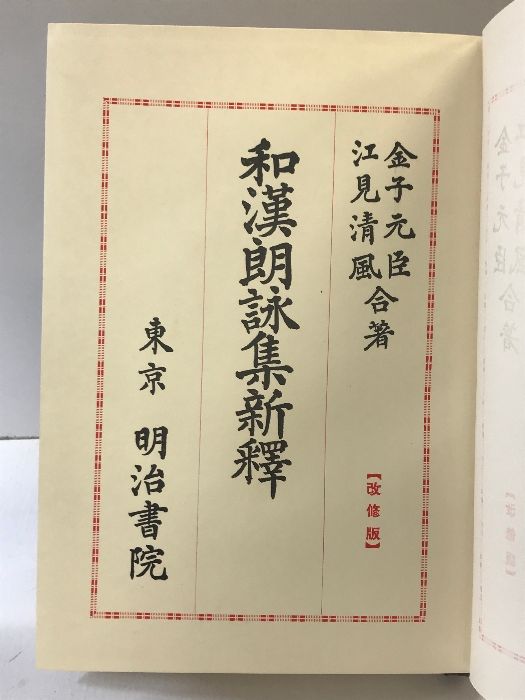 金子元臣
江見清風 合著
【改修版】
和漢朗詠集新釋
東京 明治書院